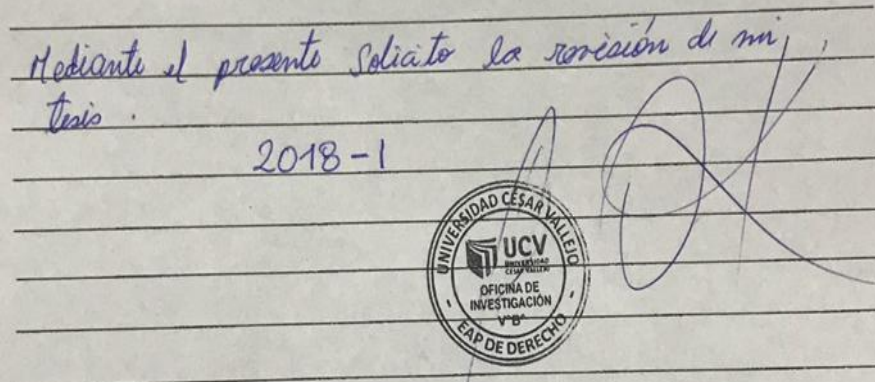 Mediante el presente solicito la revisión de mi
tesis.
2018-I
UNIVERSIDAD CÉSAR VALLEJO
UCV
UNIVERSIDAD
CÉSAR VALLEJO
OFICINA DE
INVESTIGACIÓN
V°B°
EAP DE DERECHO